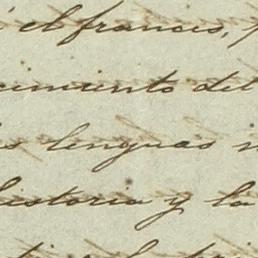 el frances,
cimiento del
lenguas
historia y la